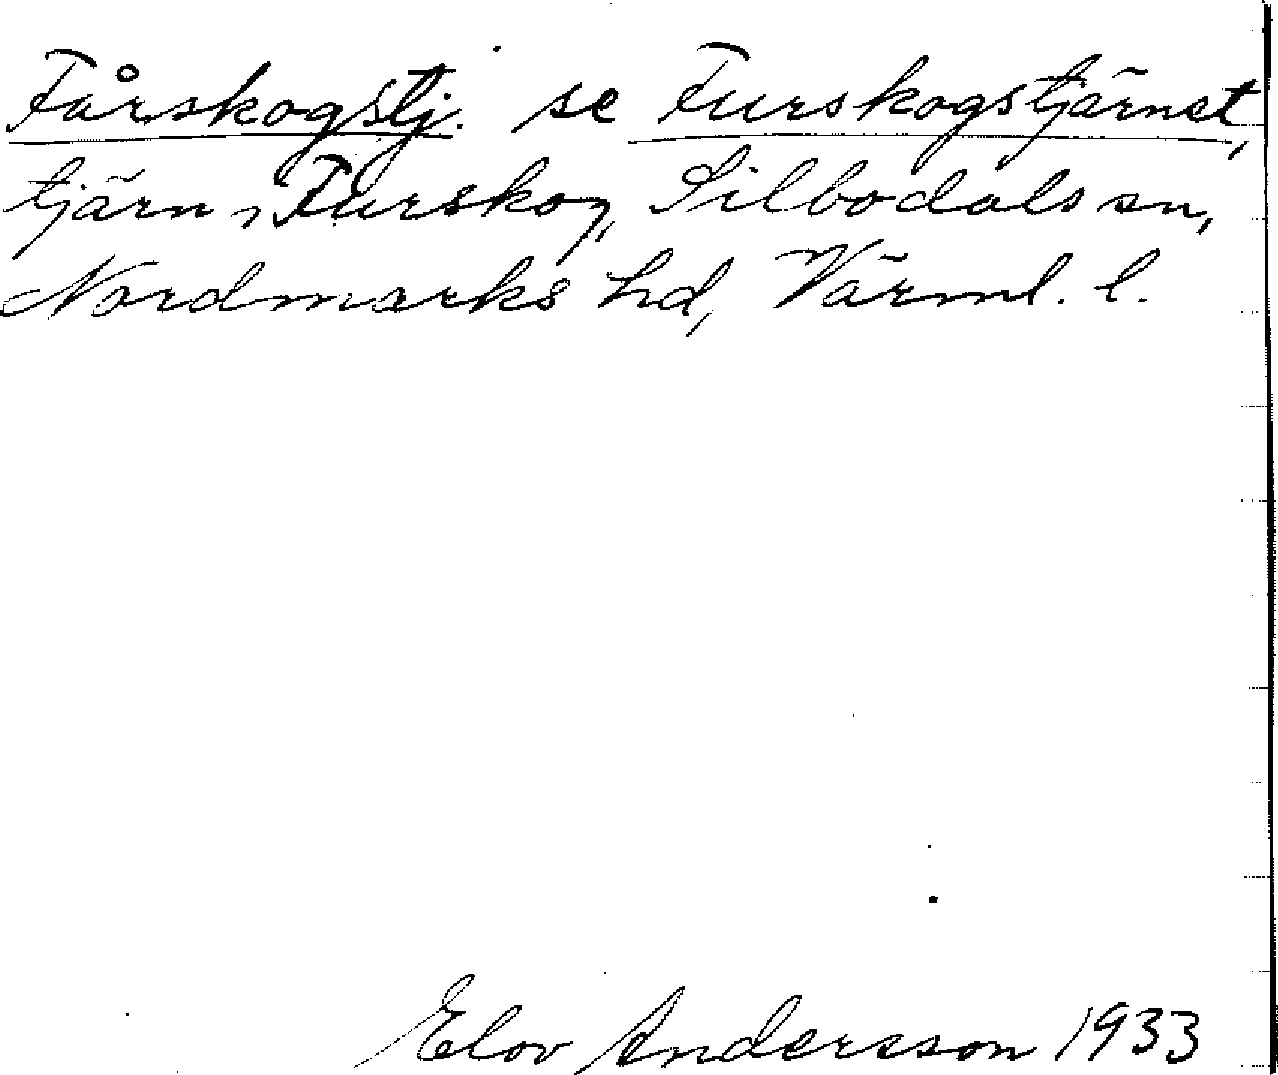 Fårskogstj. se Furskogstjärnet,
tjärn, Furskog, Silbodals sn,
Nordmarks hd, Värml. l.
Elov Andersson 1933